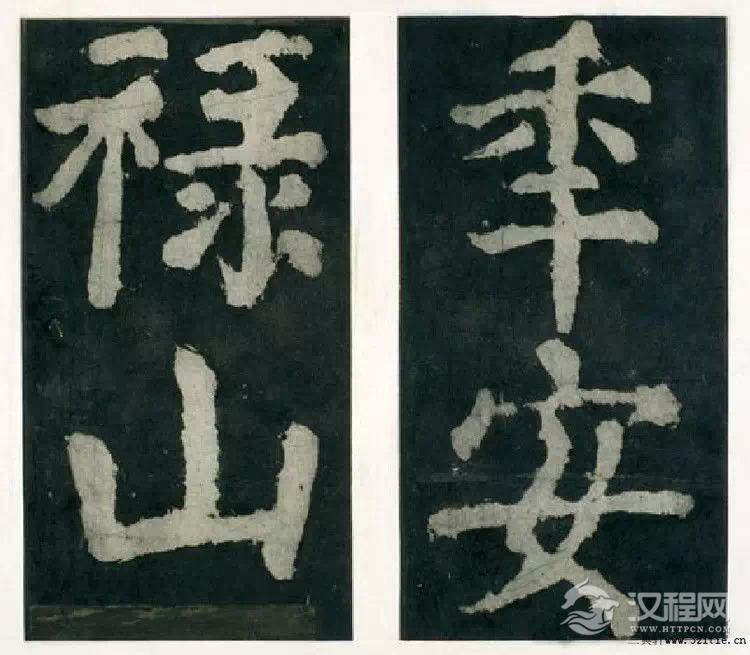 秊安
禄山
汉程网
WWW.HTTPCN.COM
www.321tie.cn